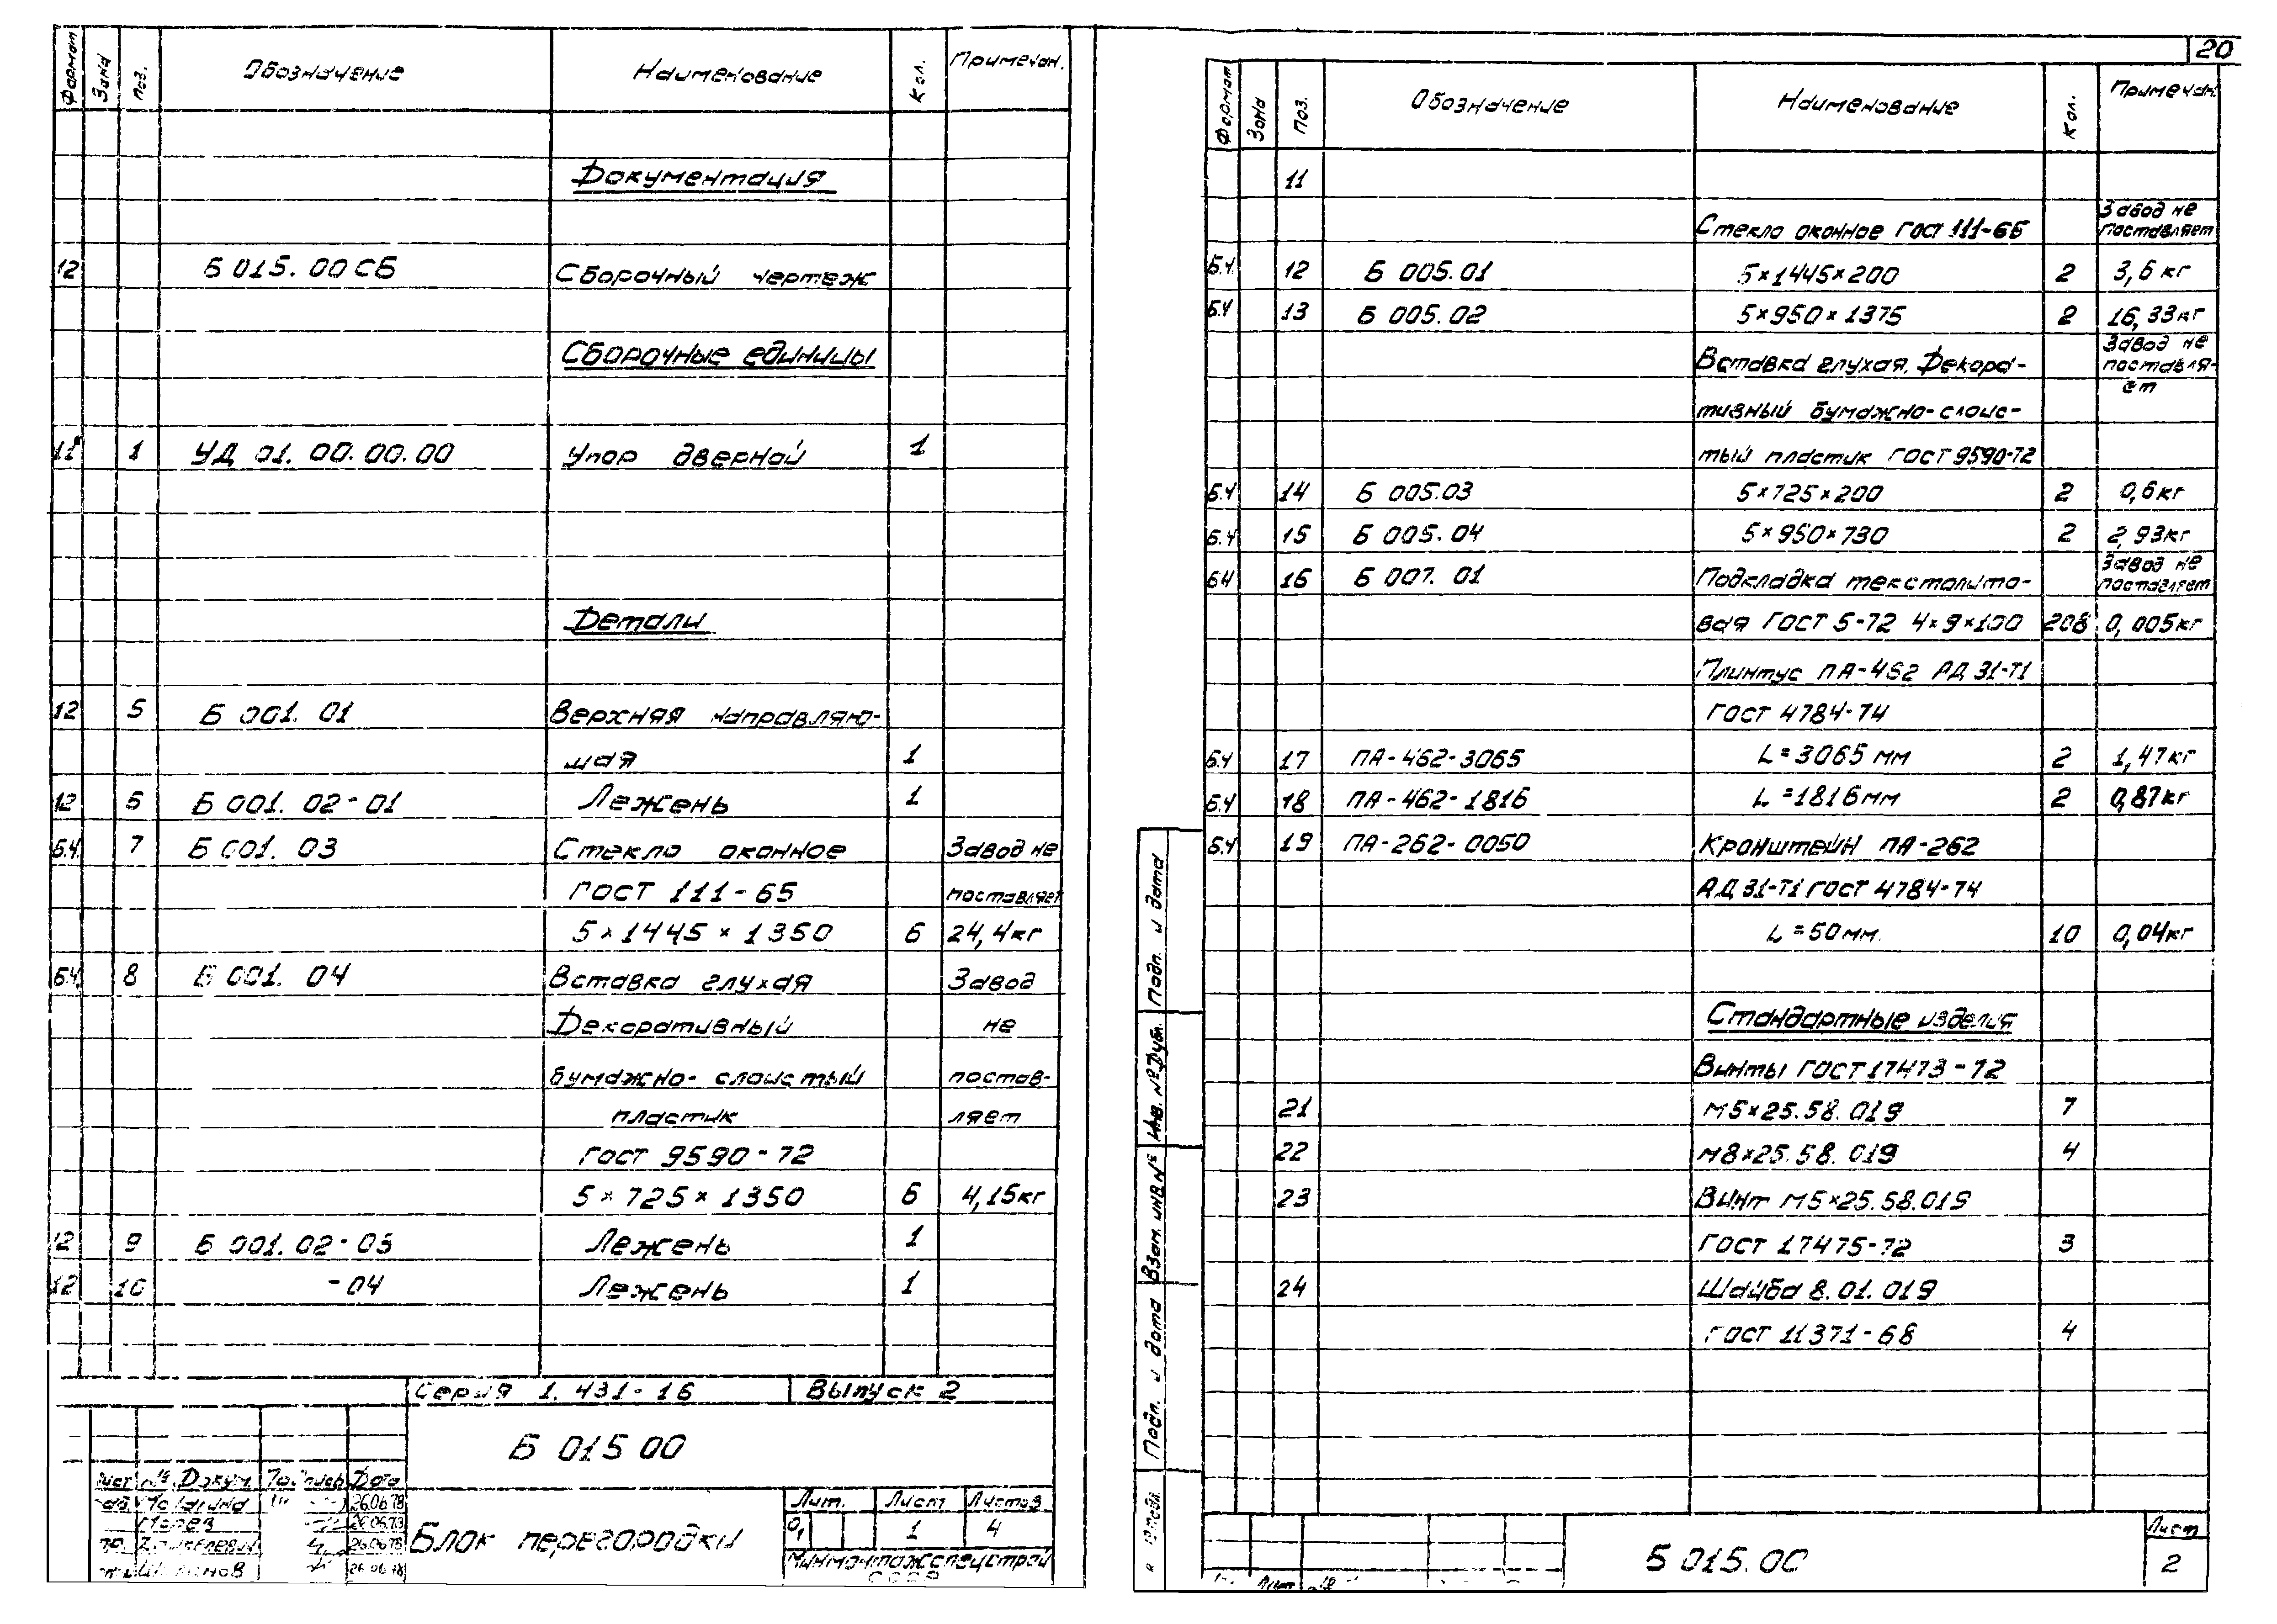 Формат Зона Поз. Обозначение Наименование Кол. Примечан.
Документация
12 Б 015.00СБ Сборочный чертеж
Сборочные единицы
11 1 УД 01.00.00.00 Упор дверной 1
Детали
12 5 Б 001.01 Верхняя направляю-
щая 1
12 6 Б 001.02-01 Лежень 1
Б.Ч. 7 Б 001.03 Стекло оконное Завод не
ГОСТ 111-65 поставляет
5×1445×1350 6 24,4кг
Б.Ч. 8 Б 001.04 Вставка глухая Завод
Декоративный не
бумажно-слоистый постав-
пластик ляет
ГОСТ 9590-72
5×725×1350 6 4,15кг
12 9 Б 001.02-03 Лежень 1
12 10 -04 Лежень 1
Серия 1.431-16 Выпуск 2
Б 015 00
Лист № Докум. Подпись Дата
26.06.78
26.06.78
26.06.78
26.06.78
Блок перегородки
Лит. Лист Листов
1 4
Минмонтажспецстрой
СССР
20
Формат Зона Поз. Обозначение Наименование Кол. Примечан.
11
Стекло оконное ГОСТ 111-65 Завод не поставляет
Б.Ч. 12 Б 005.01 5×1445×200 2 3,6кг
Б.Ч 13 Б 005.02 5×950×1375 2 16,33кг
Вставка глухая. Декора- Завод не поставля-
ет
тивный бумажно-слоис-
тый пластик ГОСТ 9590-72
Б.Ч 14 Б 005.03 5×725×200 2 0,6кг
Б.Ч 15 Б 005.04 5×950×730 2 2,93кг
БЧ 16 Б 007.01 Подкладка текстолито- Завод не поставляет
вая ГОСТ 5-72 4×9×100 208 0,005кг
Плинтус ПА-462 АД 31-Т1
ГОСТ 4784-74
Б.Ч 17 ПА-462-3065 L=3065мм 2 1,47кг
Б.Ч 18 ПА-462-1816 L=1816мм 2 0,87кг
Б.Ч 19 ПА-262-0050 Кронштейн ПА-262
АД 31-Т1 ГОСТ 4784-74
L=50мм. 10 0,04кг
Стандартные изделия
Винты ГОСТ 17473-72
21 М5×25.58.019 7
22 М8×25.58.019 4
23 Винт М5×25.58.019
ГОСТ 17475-72 3
24 Шайба 8.01.019
ГОСТ 11371-68 4
Подп. и дата
Инв. № Дубл.
Взам. инв. №
Подп. и дата
Б 015.00
Лист
2